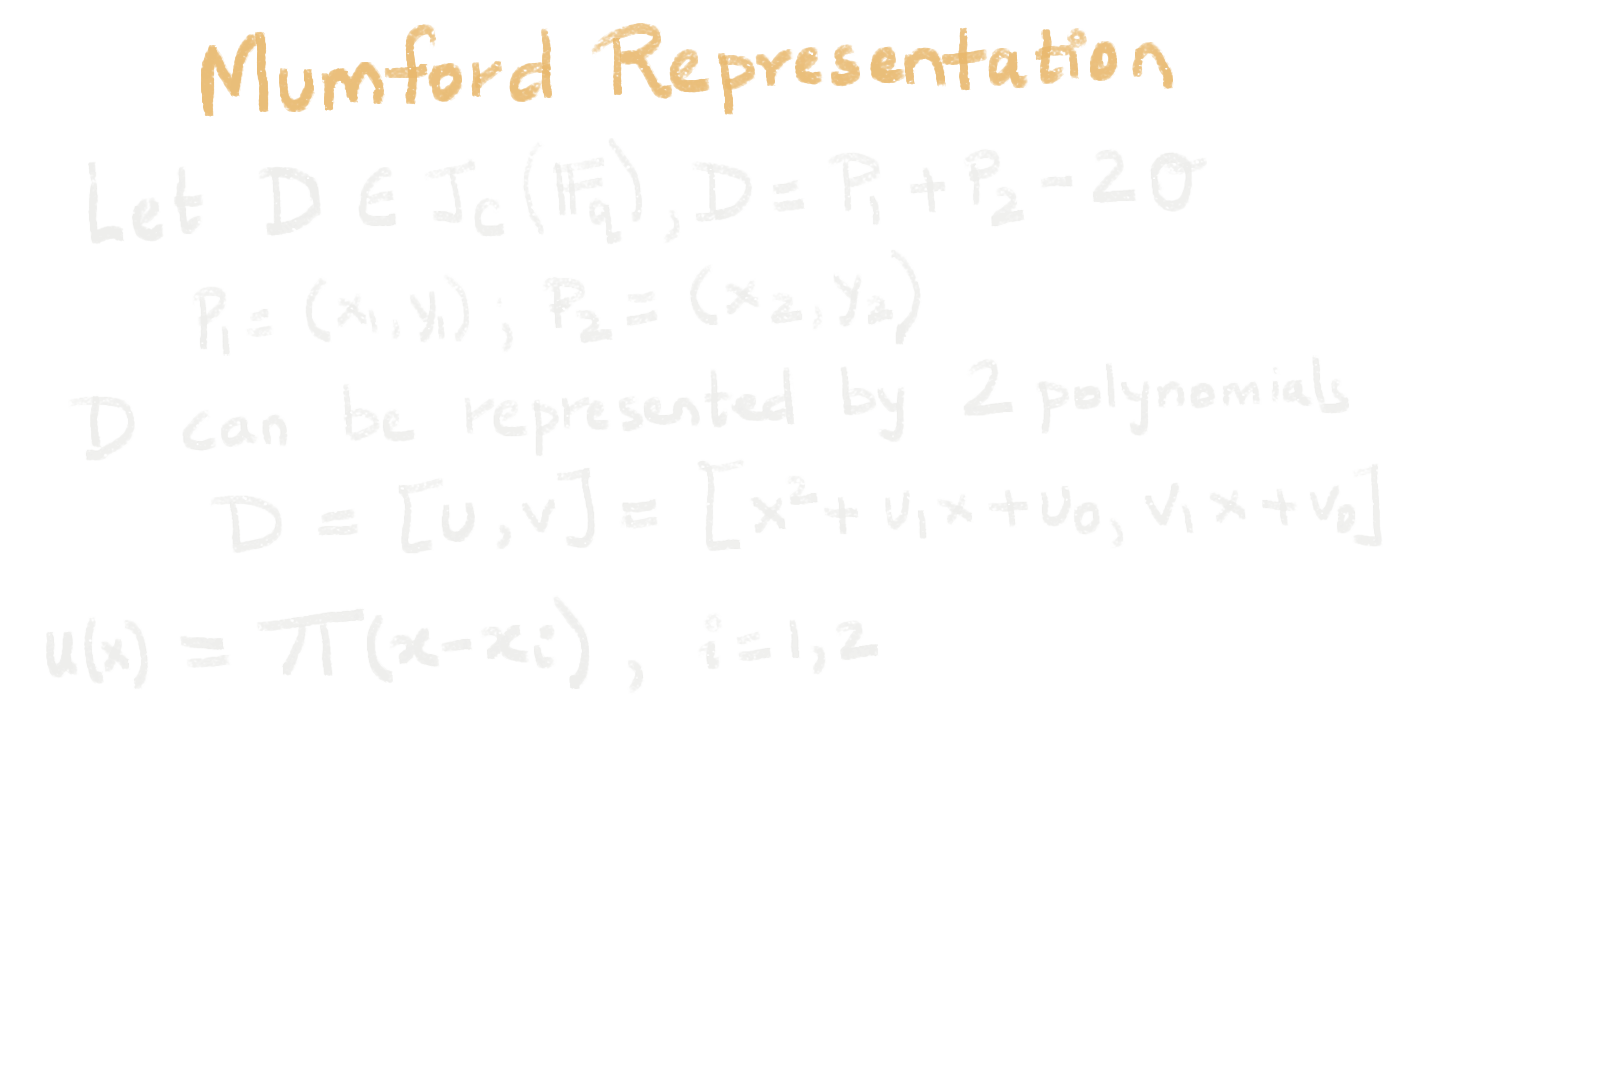 Mumford Representation
Let D ∈ J_C(𝔽_q), D = P₁ + P₂ - 2O
P₁ = (x₁, y₁) ; P₂ = (x₂, y₂)
D can be represented by 2 polynomials
D = [u, v] = [x² + u₁x + u₀, v₁x + v₀]
u(x) = π(x - xᵢ), i = 1, 2